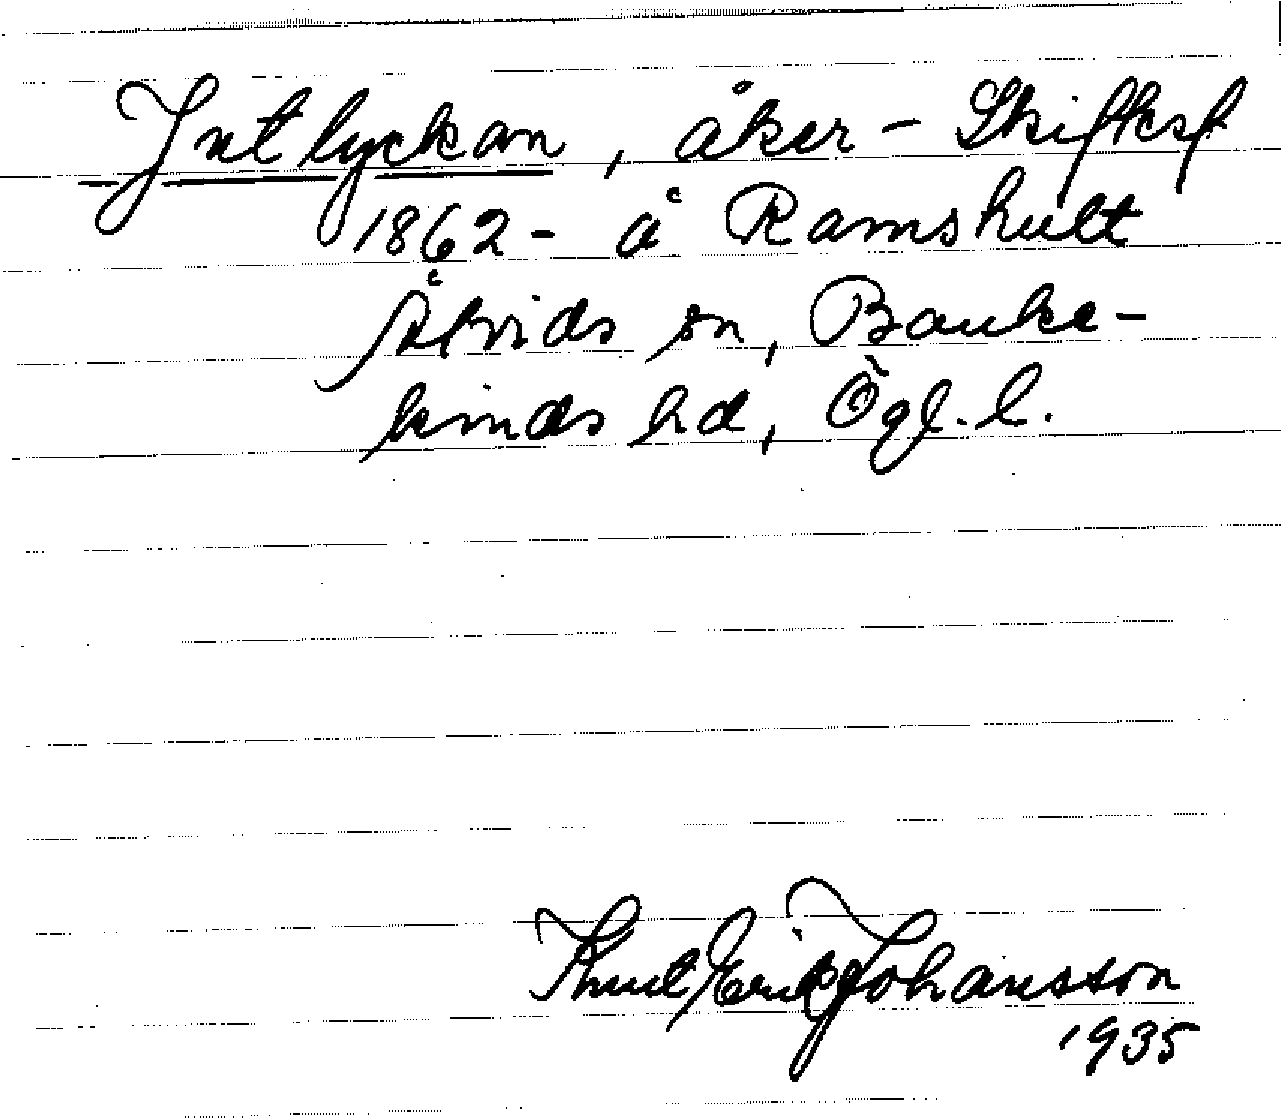 Jutlyckan, åker -
1862 - å Ramshult
Åtvids sn, Banke-
kinds hd, Ögl. l.
Knut Erik Johansson
1935